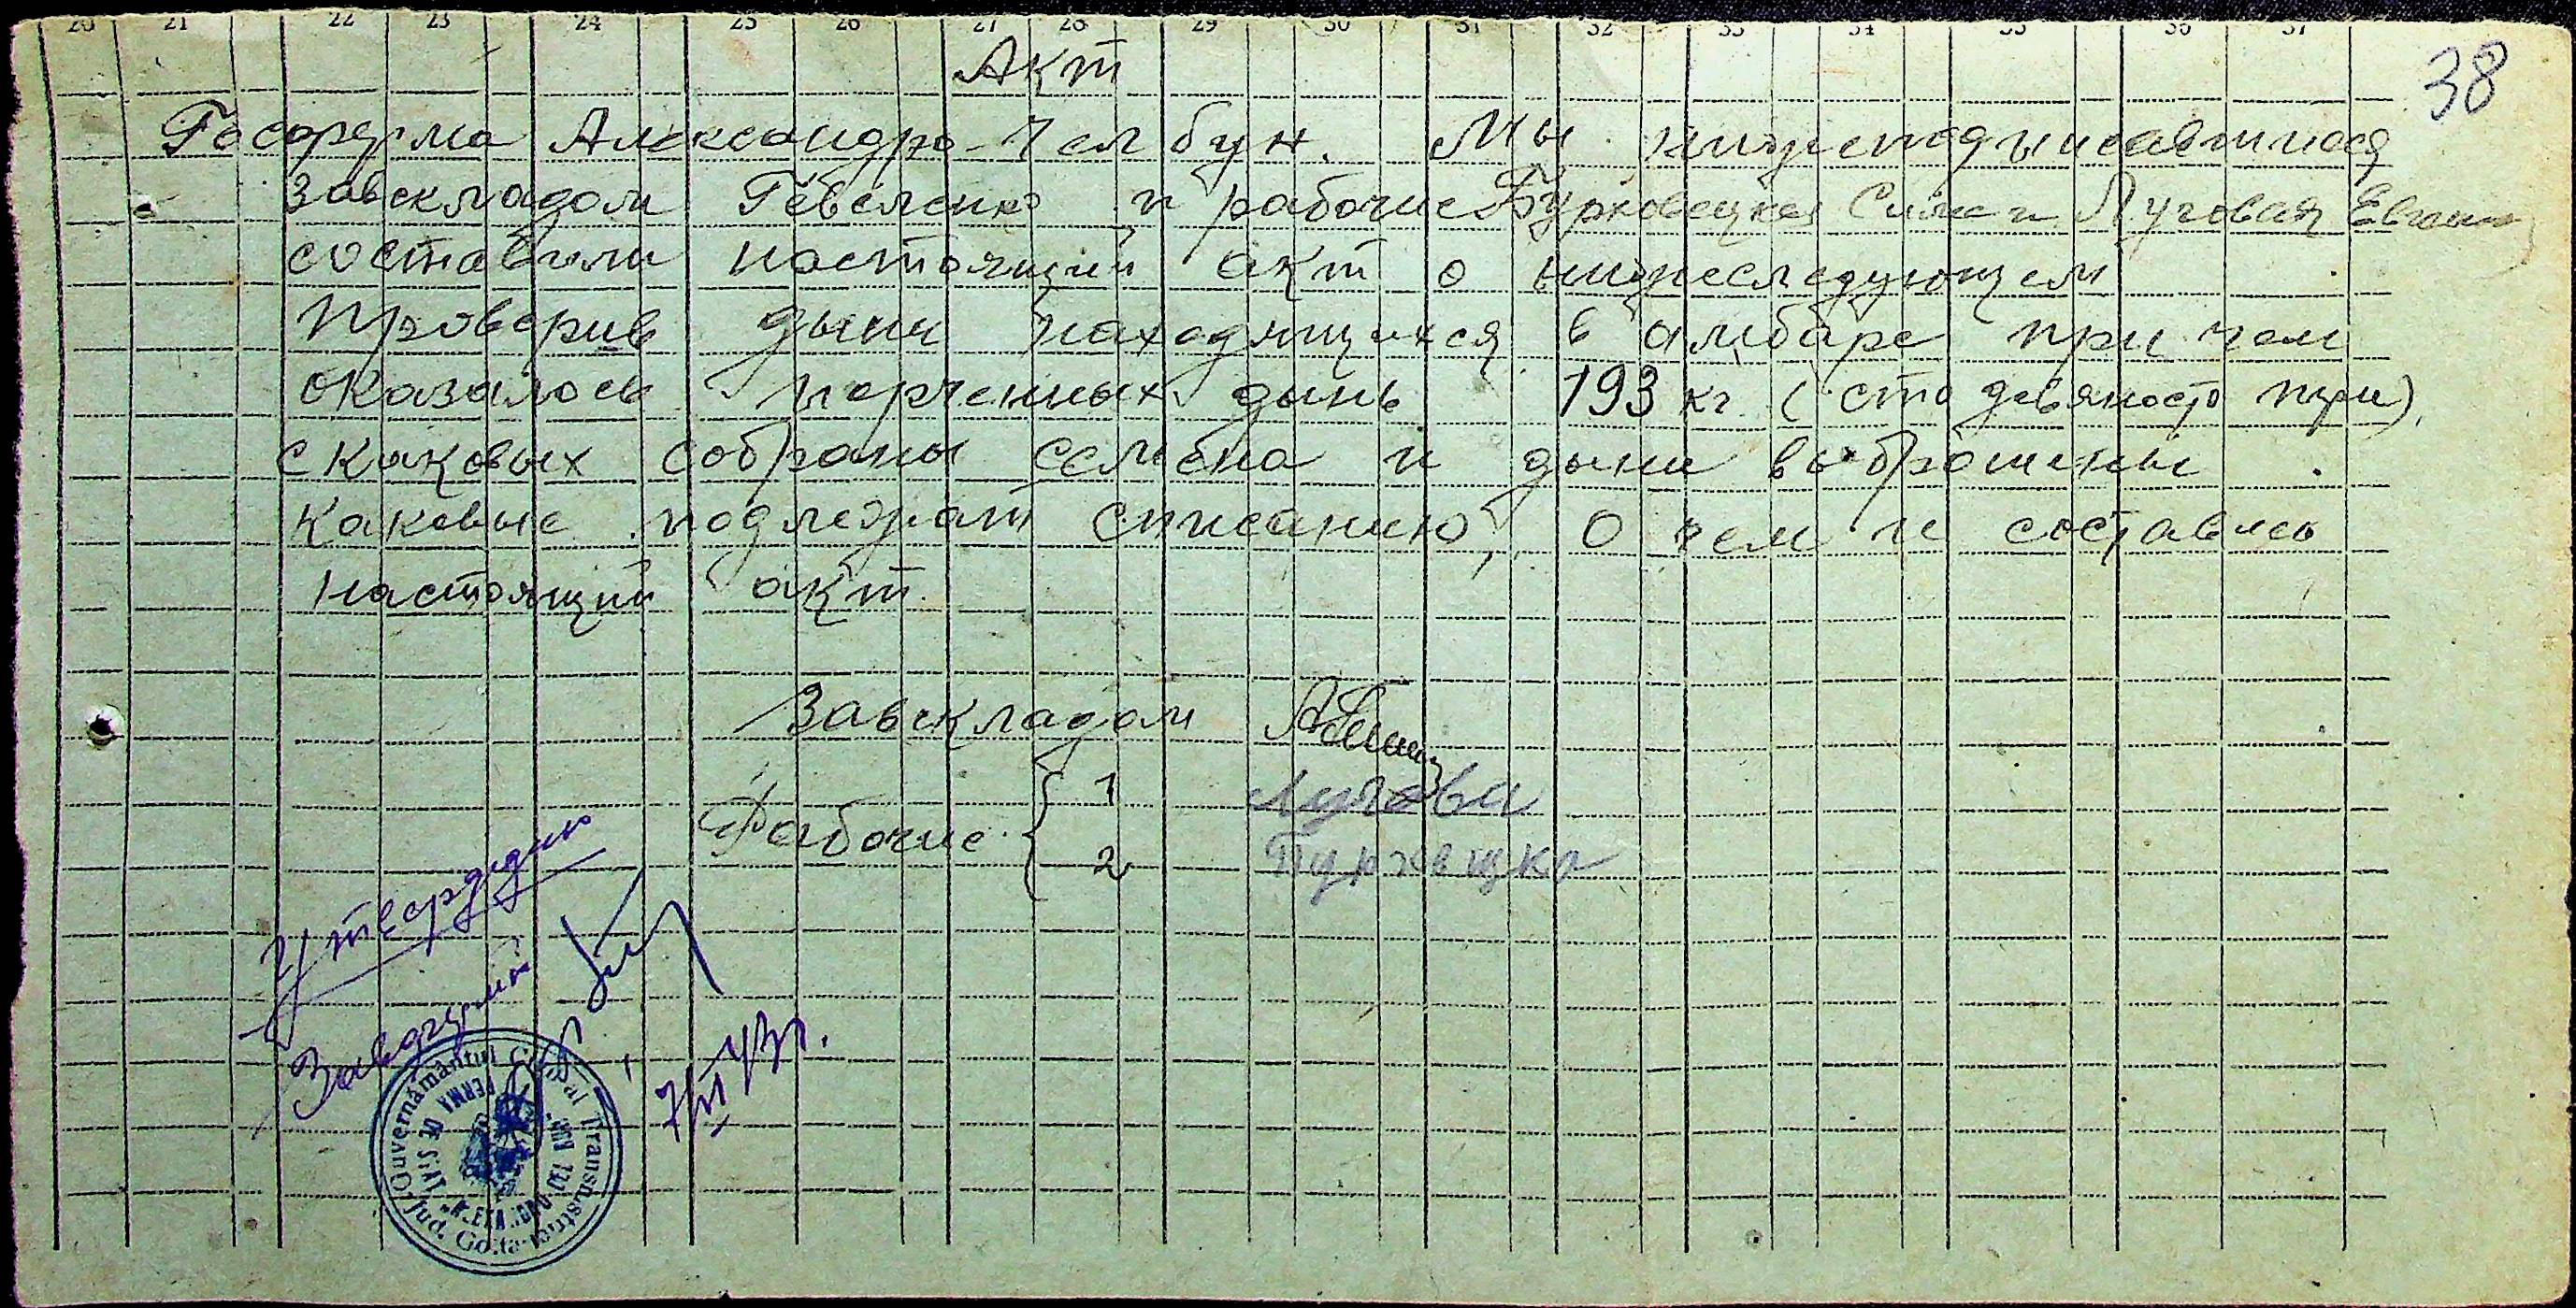 20 21 22 23 24 25 26 27 28 29 30 31 32 33 34 35 36 37
38
Акт
Госферма Александро-Телбун. Мы нижеподписавшиеся
завскладом Гевеленко и рабочие Бурковецкая Сима и Луговая Евгения
составили настоящий акт о нижеследующем
Проверив дыни находящихся в амбаре при чем
оказалось порченных дынь 193 кг. (сто девяносто три),
с каковых собраны семена и дыни выброшены.
каковые подлежат списанию, О чем и составлен
настоящий акт.
Завскладом
Рабочие { 1 Лугова
2
Утверждаю
Завфермой
7/III 43г.
Guvernământul Civil al Transnistriei
Jud.
FERMA DE STAT